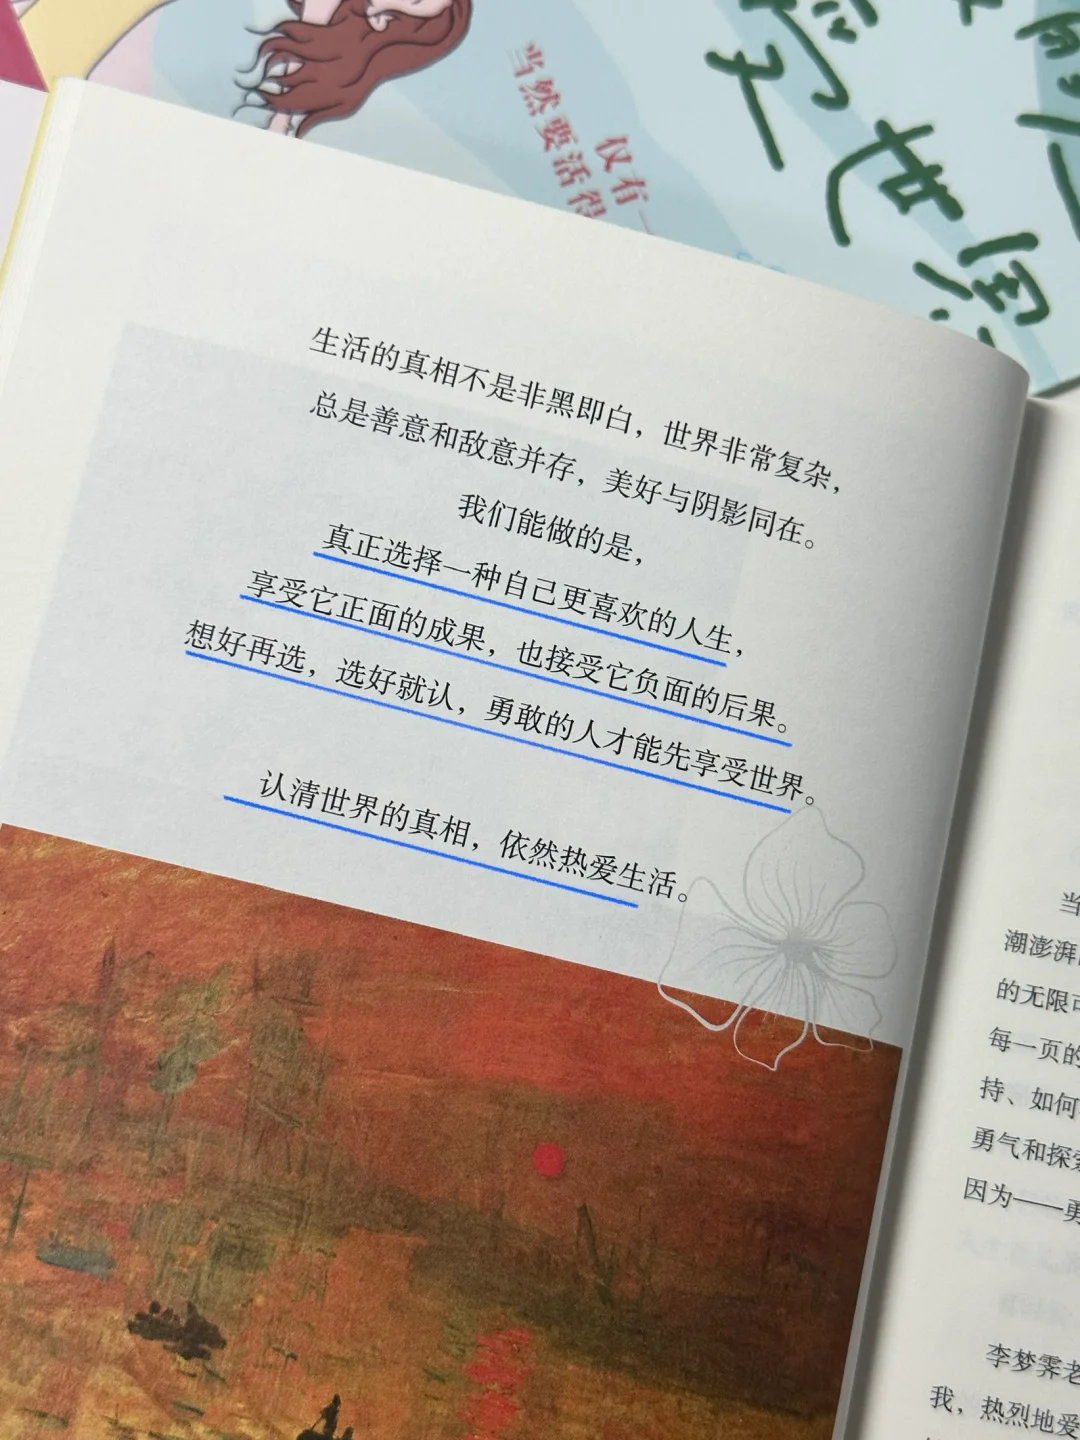 当然要活得
仅有一
世界
生活的真相不是非黑即白，世界非常复杂，
总是善意和敌意并存，美好与阴影同在。
我们能做的是，
真正选择一种自己更喜欢的人生，
享受它正面的成果，也接受它负面的后果。
想好再选，选好就认，勇敢的人才能先享受世界。
认清世界的真相，依然热爱生活。
当
潮澎湃
的无限可
每一页的
持、如何
勇气和探索
因为——勇
李梦霁老
我，热烈地爱